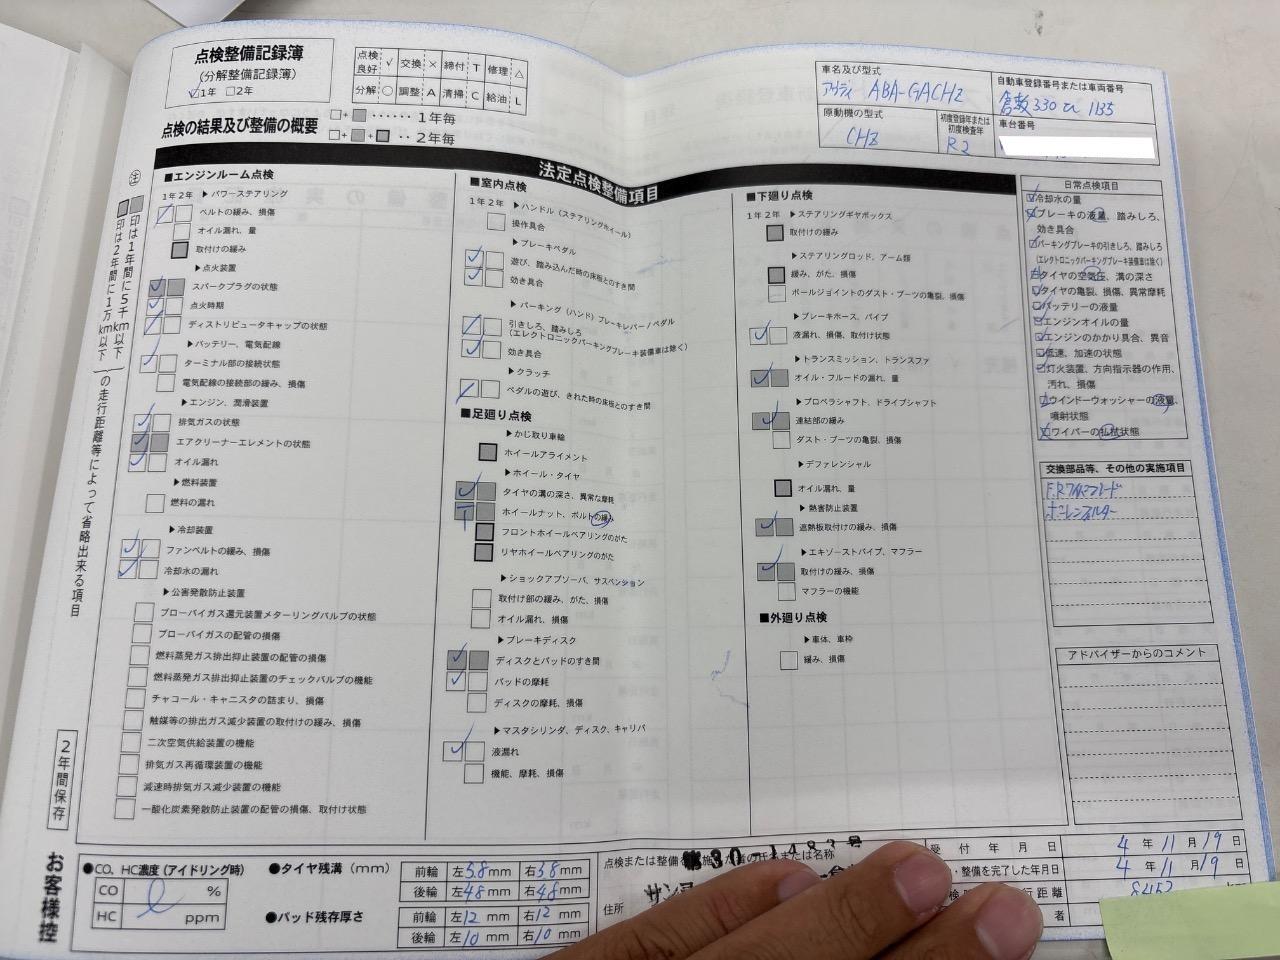 点検整備記録簿
(分解整備記録簿)
☑1年 □2年
点検良好 ✓ 交換 × 締付 T 修理 △
分解 ○ 調整 A 清掃 C 給油 L
点検の結果及び整備の概要
□+■‥‥‥1年毎
□+■+■‥2年毎
車名及び型式
アウディ ABA-GACHZ
自動車登録番号または車両番号
倉敷330 1135
原動機の型式
CHZ
初度登録年または初度検査年
R2
車台番号
法定点検整備項目
注
■印は1年間に5千km以下
■印は2年間に1万km以下
の走行距離等によって省略出来る項目
2年間保存
お客様控
■エンジンルーム点検
1年2年
▶パワーステアリング
ベルトの緩み、損傷
オイル漏れ、量
取付けの緩み
▶点火装置
スパークプラグの状態
点火時期
ディストリビュータキャップの状態
▶バッテリー、電気配線
ターミナル部の接続状態
電気配線の接続部の緩み、損傷
▶エンジン、潤滑装置
排気ガスの状態
エアクリーナーエレメントの状態
オイル漏れ
▶燃料装置
燃料の漏れ
▶冷却装置
ファンベルトの緩み、損傷
冷却水の漏れ
▶公害発散防止装置
ブローバイガス還元装置メターリングバルブの状態
ブローバイガスの配管の損傷
燃料蒸発ガス排出抑止装置の配管の損傷
燃料蒸発ガス排出抑止装置のチェックバルブの機能
チャコール・キャニスタの詰まり、損傷
触媒等の排出ガス減少装置の取付けの緩み、損傷
二次空気供給装置の機能
排気ガス再循環装置の機能
減速時排気ガス減少装置の機能
一酸化炭素発散防止装置の配管の損傷、取付け状態
■室内点検
1年2年
▶ハンドル(ステアリングホイール)
操作具合
▶ブレーキペダル
遊び、踏み込んだ時の床板とのすき間
効き具合
▶パーキング(ハンド)ブレーキレバー/ペダル
引きしろ、踏みしろ
(エレクトロニックパーキングブレーキ装備車は除く)
効き具合
▶クラッチ
ペダルの遊び、きれた時の床板とのすき間
■足廻り点検
▶かじ取り車輪
ホイールアライメント
▶ホイール・タイヤ
タイヤの溝の深さ、異常な摩耗
T ホイールナット、ボルトの緩み
フロントホイールベアリングのがた
リヤホイールベアリングのがた
▶ショックアブソーバ、サスペンション
取付け部の緩み、がた、損傷
オイル漏れ、損傷
▶ブレーキディスク
ディスクとパッドのすき間
パッドの摩耗
ディスクの摩耗、損傷
▶マスタシリンダ、ディスク、キャリパ
液漏れ
機能、摩耗、損傷
■下廻り点検
1年2年
▶ステアリングギヤボックス
取付けの緩み
▶ステアリングロッド、アーム類
緩み、がた、損傷
ボールジョイントのダスト・ブーツの亀裂、損傷
▶ブレーキホース、パイプ
液漏れ、損傷、取付け状態
▶トランスミッション、トランスファ
オイル・フルードの漏れ、量
▶プロペラシャフト、ドライブシャフト
連結部の緩み
ダスト・ブーツの亀裂、損傷
▶デファレンシャル
オイル漏れ、量
▶熱害防止装置
遮熱板取付けの緩み、損傷
▶エキゾーストパイプ、マフラー
取付けの緩み、損傷
マフラーの機能
■外廻り点検
▶車体、車枠
緩み、損傷
日常点検項目
冷却水の量
ブレーキの液量、踏みしろ、
効き具合
パーキングブレーキの引きしろ、踏みしろ
(エレクトロニックパーキングブレーキ装備車は除く)
タイヤの空気圧、溝の深さ
タイヤの亀裂、損傷、異常摩耗
バッテリーの液量
エンジンオイルの量
エンジンのかかり具合、異音
低速、加速の状態
灯火装置、方向指示器の作用、
汚れ、損傷
ウインドーウォッシャーの液量、
噴射状態
ワイパーの払拭状態
交換部品等、その他の実施項目
F.Rワイパーブレード
アドバイザーからのコメント
●CO、HC濃度(アイドリング時)
CO %
HC ppm
●タイヤ残溝(mm)
前輪 左5.8mm 右5.8mm
後輪 左4.8mm 右4.8mm
●パッド残存厚さ
前輪 左12mm 右12mm
後輪 左10mm 右10mm
点検または整備を実施した者の氏名または名称
住所
受付年月日 4年11月19日
・整備を完了した年月日 4年11月19日
行距離 km
者